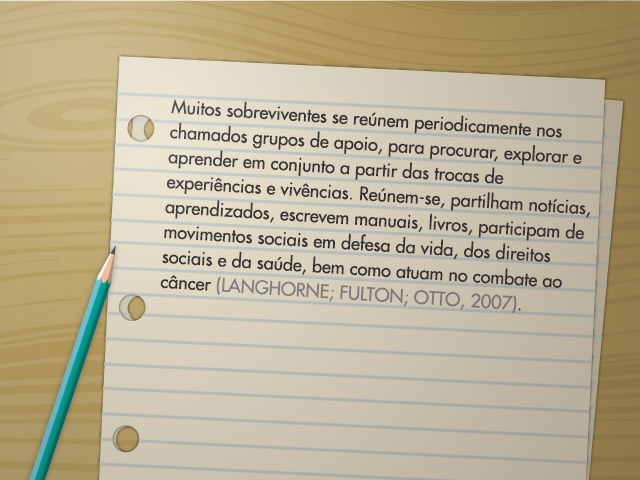 Muitos sobreviventes se reúnem periodicamente nos
chamados grupos de apoio, para procurar, explorar e
aprender em conjunto a partir das trocas de
experiências e vivências. Reúnem-se, partilham notícias,
aprendizados, escrevem manuais, livros, participam de
movimentos sociais em defesa da vida, dos direitos
sociais e da saúde, bem como atuam no combate ao
câncer (LANGHORNE; FULTON; OTTO, 2007).